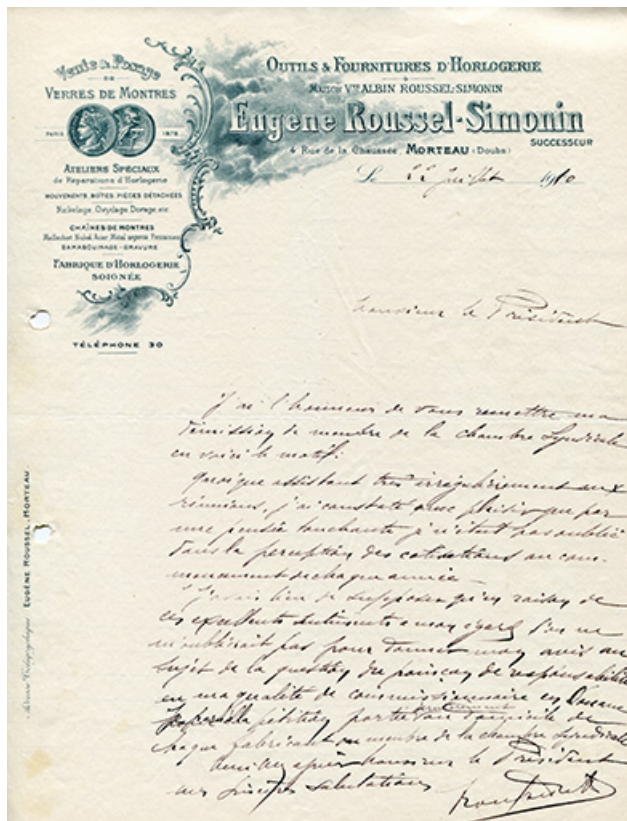 Vente & Posage
DE
VERRES DE MONTRES
PARIS 1878
ATELIERS SPÉCIAUX
de Réparations d'Horlogerie
MOUVEMENTS, BOÎTES, PIÈCES DÉTACHÉES
Nickelage, Oxydage Dorage, etc.
CHAÎNES DE MONTRES
DAMASQUINAGE - GRAVURE
FABRIQUE D'HORLOGERIE
SOIGNÉE
TÉLÉPHONE 30
OUTILS & FOURNITURES D'HORLOGERIE
MAISON VVE ALBIN ROUSSEL-SIMONIN
Eugène Roussel-Simonin
SUCCESSEUR
4 Rue de la Chaussée, MORTEAU (Doubs)
Le 22 Juillet 1910
Monsieur le Président
J'ai l'honneur de vous remettre ma
démission de membre de la chambre Syndicale
en voici le motif:
Quoique assistant très irrégulièrement aux
réunions, j'ai constaté avec plaisir que par
une pensée touchante je n'étais pas oublié
dans la perception des cotisations au com-
mencement de chaque année -
J'avais lieu de supposer qu'en raison de
ces excellents sentiments a mon egard l'on ne
m'oublirait pas pour donner mon avis au
sujet de la question du poinçon de responsabilité
en ma qualité de commissionnaire en Douane
la pétition portée au domicile de
chaque fabricant ou membre de la chambre Syndicale
Monsieur le Président
mes sincères salutations
Adresse Télégraphique EUGÈNE ROUSSEL, MORTEAU